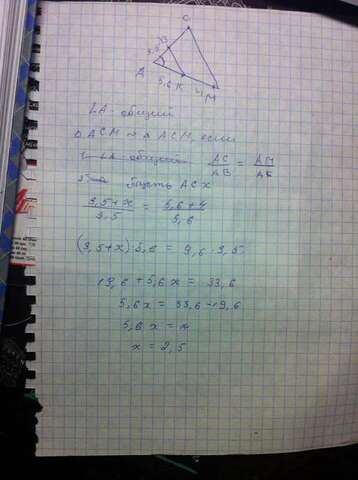 C
3,5 B
A
5,6 K 4 M
∠A - общий
△ ACM ~ △ ACM, если
1. ∠A общий AC/AB = AM/AK
ACX
3,5+x/3,5 = 5,6+4/5,6
(3,5+x) 5,6 = 9,6 · 3,5
19,6 + 5,6x = 33,6
5,6x = 33,6 - 19,6
5,6x = 14
x = 2,5